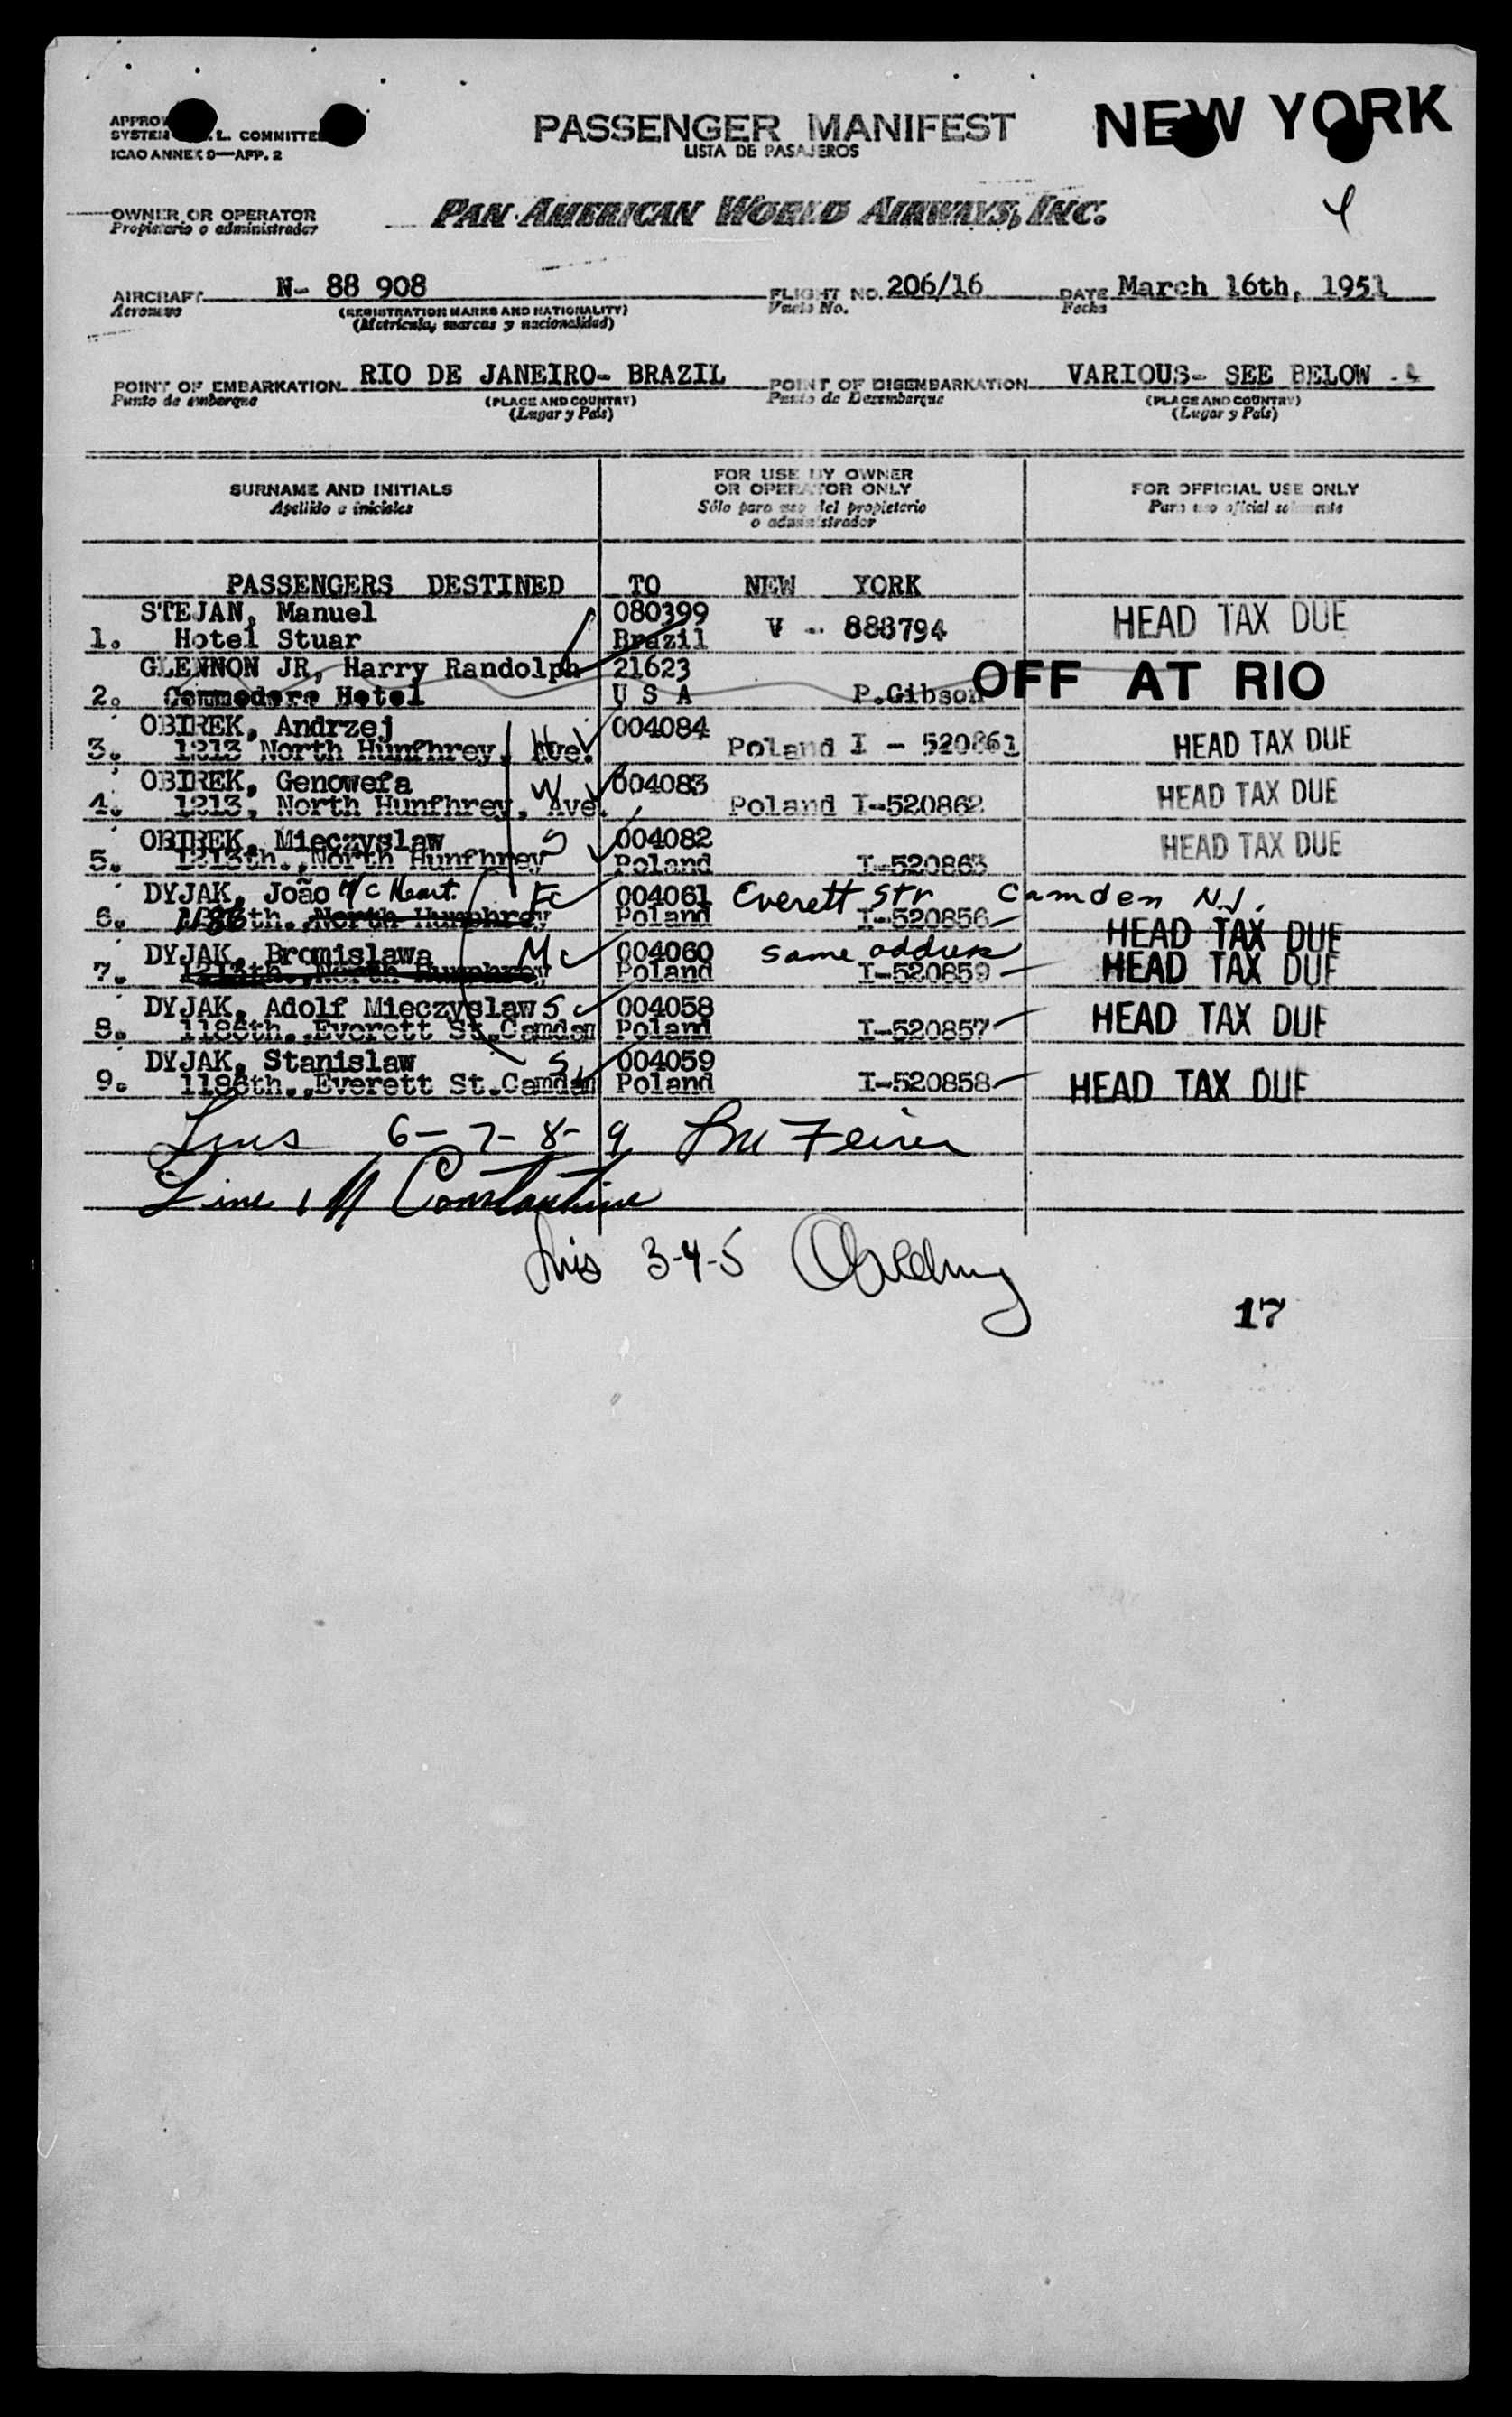 NEW YORK
PASSENGER MANIFEST
LISTA DE PASAJEROS
L. COMMITTEE
ICAO ANNEX 9—APP. 2
OWNER OR OPERATOR
Propietario o administrador
PAN AMERICAN WORLD AIRWAYS, INC.
AIRCRAFT N- 88 908 FLIGHT NO. 206/16 DATE March 16th, 1951
Aeronave (REGISTRATION MARKS AND NATIONALITY) Vuelo No. Fecha
(Matrícula, marcas y nacionalidad)
POINT OF EMBARKATION RIO DE JANEIRO- BRAZIL POINT OF DISEMBARKATION VARIOUS- SEE BELOW
Punto de embarque (PLACE AND COUNTRY) Punto de Desembarque (PLACE AND COUNTRY)
(Lugar y País) (Lugar y País)
SURNAME AND INITIALS
Apellido e iniciales
FOR USE BY OWNER
OR OPERATOR ONLY
Sólo para uso del propietario
o administrador
FOR OFFICIAL USE ONLY
Para uso oficial solamente
PASSENGERS DESTINED TO NEW YORK
STEJAN, Manuel 080399 V - 888794 HEAD TAX DUE
1. Hotel Stuar Brazil
GLENNON JR, Harry Randolph 21623 OFF AT RIO
2. Commodore Hotel U S A P.Gibson
OBIREK, Andrzej 004084
3. 1213 North Hunfhrey, Ave. Poland I - 520861 HEAD TAX DUE
OBIREK, Genowefa W 004083
4. 1213, North Hunfhrey, Ave. Poland I-520862 HEAD TAX DUE
OBIREK, Mieczyslaw S 004082
5. 1213th., North Hunfhrey Poland I-520863 HEAD TAX DUE
DYJAK, João 004061 Everett Str Camden N.J.
6. 1186th., North Humphrey Poland I-520856 HEAD TAX DUE
DYJAK, Bronislawa M 004060 same address
7. 1213th., North Humphrey Poland I-520859 HEAD TAX DUE
DYJAK, Adolf Mieczyslaw S 004058
8. 1186th., Everett St.Camden Poland I-520857 HEAD TAX DUE
DYJAK, Stanislaw S 004059
9. 1186th., Everett St.Camden Poland I-520858 HEAD TAX DUE
6- 7- 8- 9
Line 1 Constantine
3-4-5
17